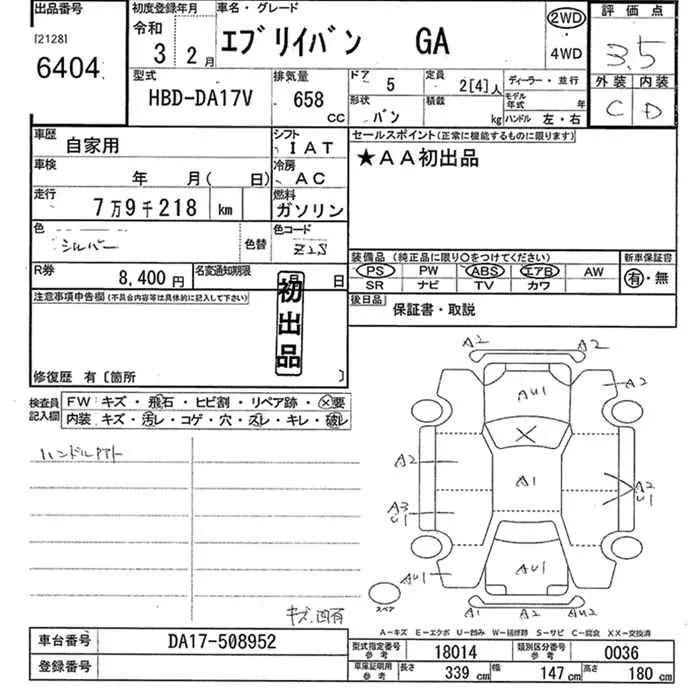 出品番号
[2128]
6404
初度登録年月
令和
3 年 2 月
車名・グレード
エブリイバン GA
2WD
・
4WD
評価点
3.5
外装 内装
C D
型式
HBD-DA17V
排気量
658 CC
ドア 5
定員 2[4]人
形状 バン
積載 kg
ディーラー・並行
モデル年式 年
ハンドル 左・右
車歴 自家用
シフト IAT
車検 年 月( 日)
冷房 AC
走行 7万9千218 km
燃料 ガソリン
色 シルバー 色替
色コード Z2S
R券 8,400円
名変通知期限 月 日
セールスポイント(正常に機能するものに限ります)
★AA初出品
装備品(純正品に限り○をつけてください)
PS PW ABS エアB AW
SR ナビ TV カワ
新車保証書
有・無
後日品
保証書・取説
注意事項申告欄(不具合内容等は具体的に記入して下さい)
初出品
修復歴 有〔箇所 〕
検査員記入欄
FW キズ・飛石・ヒビ割・リペア跡・×要
内装 キズ・汚レ・コゲ・穴・スレ・キレ・破レ
キズ凹有
A2 A2
AU1
A2
A2
A1
A2
U1
A3
U1
AU1
AU1
A1 A2 AU2
スペア
A-キズ E-エクボ U-凹み W-補修跡 S-サビ C-腐食 XX-交換済
車台番号 DA17-508952
登録番号
型式指定番号 参考 18014
類別区分番号 参考 0036
車庫証明用 参考 長さ 339 cm 幅 147 cm 高さ 180 cm